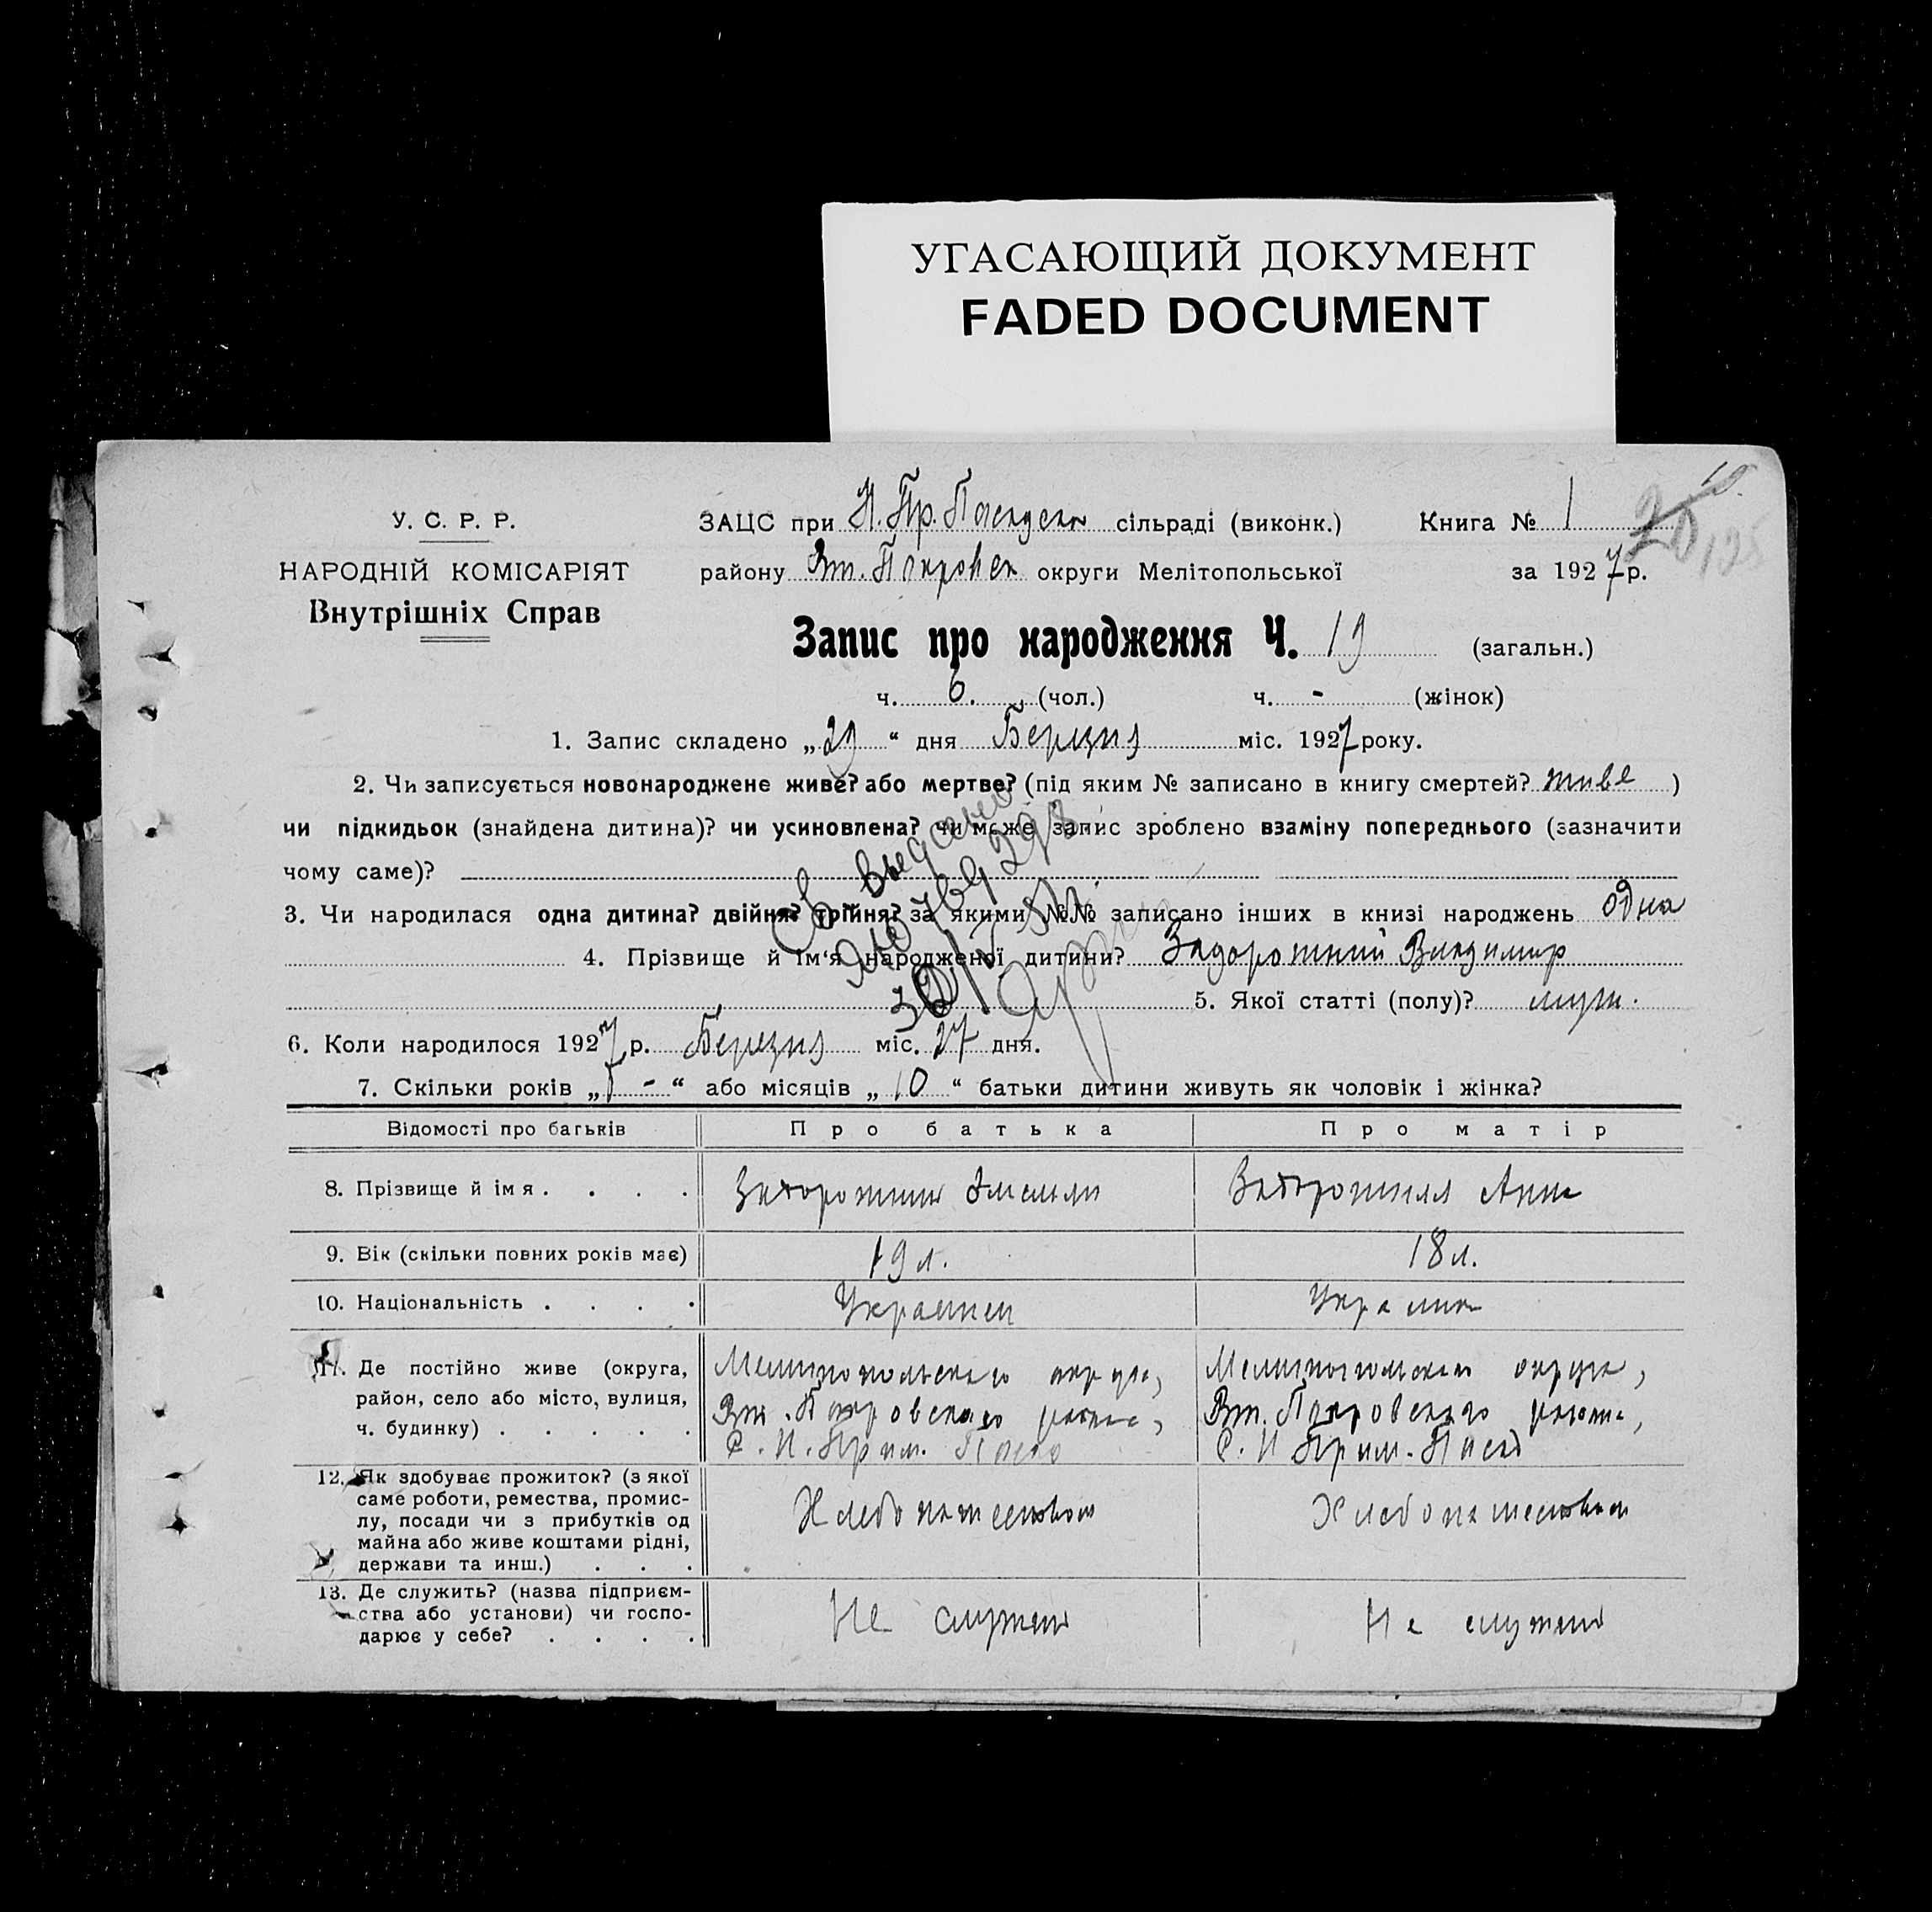 УГАСАЮЩИЙ ДОКУМЕНТ
FADED DOCUMENT
У. С. Р. Р.
НАРОДНІЙ КОМІСАРІЯТ
Внутрішніх Справ
ЗАЦС при Н. Пр. сільраді (виконк.) Книга № 1
району Вт. Покровск округи Мелітопольської за 1927 р.
Запис про народження Ч. 19 (загальн.)
ч. 6. (чол.) ч. - (жінок)
1. Запис складено „29“ дня Березня міс. 1927 року.
2. Чи записується новонароджене живе? або мертве? (під яким № записано в книгу смертей? живе )
чи підкидьок (знайдена дитина)? чи усиновлена? чи може запис зроблено взаміну попереднього (зазначити
чому саме)?
3. Чи народилася одна дитина? двійня? трійня? за якими №№ записано інших в книзі народжень одна
4. Прізвище й ім‘я народженої дитини? Задорожний Владимир
5. Якої статті (полу)? муж.
6. Коли народилося 1927 р. Березня міс. 27 дня.
7. Скільки років „ - “ або місяців „ 10 “ батьки дитини живуть як чоловік і жінка?
Св. выдано
Відомості про батьків Про батька Про матір
8. Прізвище й ім я . . . . Задорожний Емельян Задорожная Анна
9. Вік (скільки повних років має) 19 л. 18 л.
10. Національність . . . . Украинец Украинка
11. Де постійно живе (округа,
район, село або місто, вулиця,
ч. будинку) . . . . .
Мелитопольского округа,
Вт. Покровского района,
С. Н. Прим. Посад
Мелитопольского округа,
Вт. Покровского района,
С. Н. Прим. Посад
12. Як здобуває прожиток? (з якої
саме роботи, ремества, промис-
лу, посади чи з прибутків од
майна або живе коштами рідні,
держави та инш.) . . .
Хлебопашеством
Хлебопашеством
13. Де служить? (назва підприєм-
ства або установи) чи госпо-
дарює у себе? . . . .
Не служит
Не служит